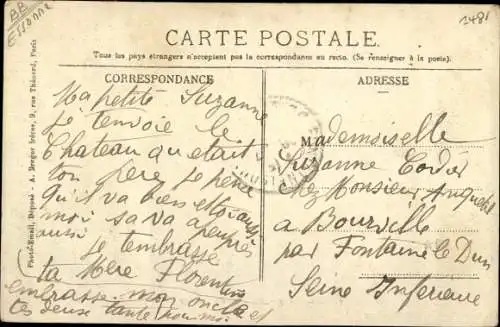 BB
Essonne
1481
CARTE POSTALE.
Tous les pays étrangers n'acceptent pas la correspondance au recto. (Se renseigner à la poste).
CORRESPONDANCE
Ma petite Suzanne
je tenvoie le
Chateau qu etait
ton père je pense
qu'il va bien et toi aussi
moi sa va a peu près
aussi je tembrasse
ta Mère Florentine
embrasse mon oncle et
tes deux tante pour moi
ADRESSE
Mademoiselle
Suzanne
chez Monsieur
a Bourville
par Fontaine le Dun
Seine Inferieure
Photo-Email, Déposé - A. Breger frères, 9, rue Thénard, Paris